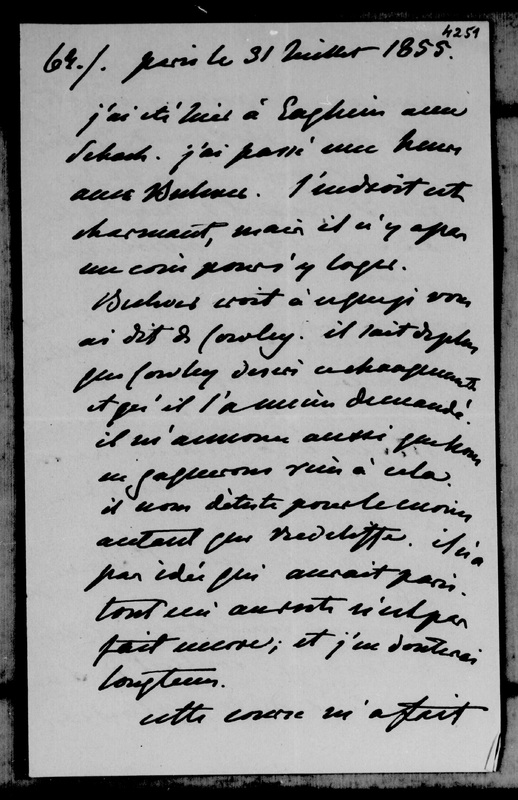 4251
64./. paris le 31 Juillet 1855.
j'ai été hier à Enghien avec
Schach. j'ai passé une heure
avec Bulwer. l'endroit est
charmant, mais il n'y a pas
un coin pour s'y loger.
Bulwer croit à ce que je vous
ai dit de Cowley. il sait de plus
que Cowley desire ce changement
et qu'il l'a même demandé.
il m'annonce aussi que nous
ne gagnerons rien à cela.
il nous déteste pour le moins
autant que Redcliffe. il n'a
pas idée qui aurait paris.
tout ceci au reste n'est pas
fait encore; et j'en douterai
longtems.
cette course m'a fait